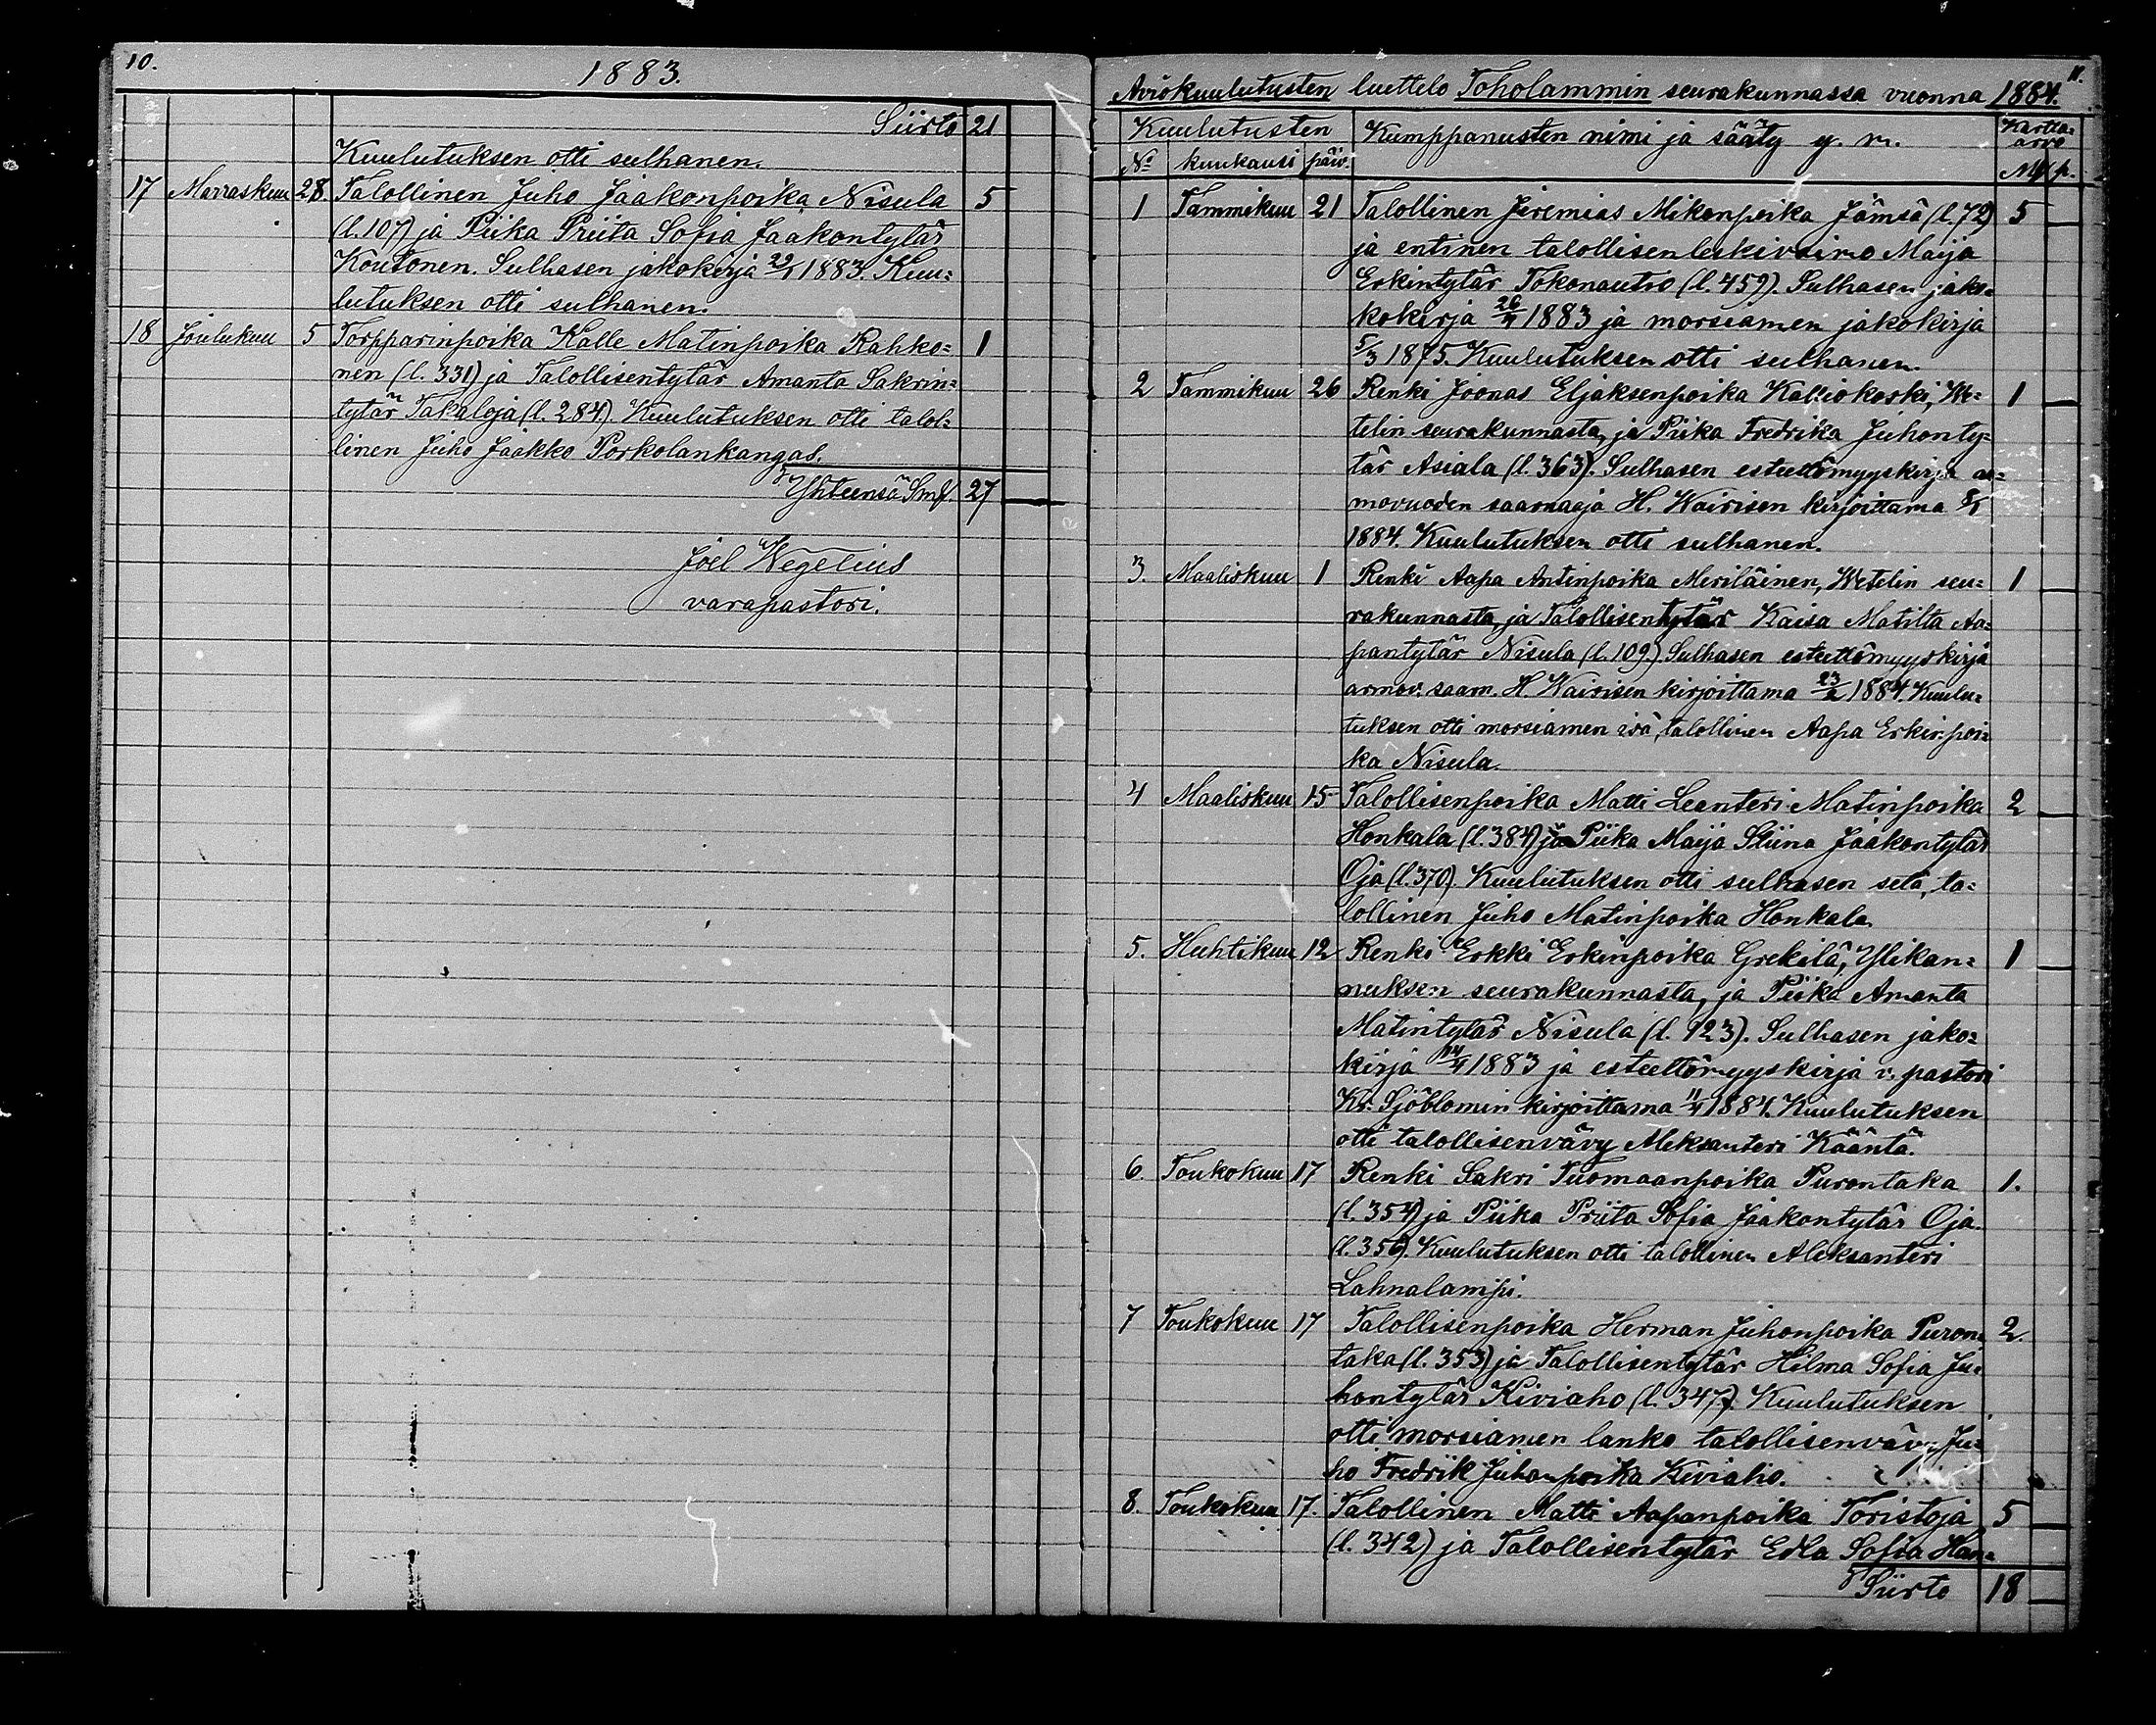 10.
1883.
Siirto 21
Kuulutuksen otti sulhanen.
17 Marraskuu 28. Talollinen Juho Jaakonpoika Nisula 5
(l. 107) ja Piika Priita Sofia Jaakontytär
Koutonen. Sulhasen jakokirja 29/1 1883. Kuu=
lutuksen otti sulhanen.
18 Joulukuu 5 Torpparinpoika Kalle Matinpoika Rahko= 1
nen (l. 331) ja Talollisentytär Amanta Sakrin=
tytär Takaloja (l. 284). Kuulutuksen otti talol=
linen Juho Jaakko Porkolankangas.
Yhteensä Smk. 27 —
Joel Wegelius
varapastori.
11.
Aviokuulutusten luettelo Toholammin seurakunnassa vuonna 1884.
Kuulutusten Kumppanusten nimi ja sääty y. m. Kartta=
arvo
No kuukausi päiv. Mk p.
1 Tammikuu 21 Talollinen Jeremias Mikonpoika Jämsä (l. 72) 5 —
ja entinen talollisen leskivaimo Maija
Erkintytär Tokonautio (l. 459). Sulhasen jako=
kokirja 26/4 1883 ja morsiamen jakokirja
5/3 1875. Kuulutuksen otti sulhanen.
2 Tammikuu 26 Renki Joonas Eljaksenpoika Kalliokoski, We= 1 —
telin seurakunnasta, ja Piika Fredrika Juhonty=
tär Asiala (l. 363). Sulhasen esteettömyyskirja ar=
movuoden saarnaaja H. Wairisen kirjoittama 8/1
1884. Kuulutuksen otti sulhanen.
3. Maaliskuu 1 Renki Aapa Antinpoika Meriläinen, Wetelin seu= 1 —
rakunnasta, ja Talollisentytär Kaisa Matilta Aa=
pantytär Nisula (l. 109.) Sulhasen esteettömyyskirja
armov. saarn. H. Wairisen kirjoittama 23/2 1884. Kuulu=
tuksen otti morsiamen isä, talollinen Aapa Erkinpoi=
ka Nisula.
4 Maaliskuu 15 Talollisenpoika Matti Leanteri Matinpoika 2 —
Honkala (l. 384) ja Piika Maija Stiina Jaakontytär
Oja (l. 370). Kuulutuksen otti sulhasen setä, ta=
lollinen Juho Matinpoika Honkala.
5. Huhtikuu 12 Renki Erkki Erkinpoika Grekilä, Ylikan= 1 —
nuksen seurakunnasta, ja Piika Amanta
Matintytär Nisula (l. 123). Sulhasen jako=
kirja 14/4 1883 ja esteettömyyskirja v. pastori
Kr. Sjöblomin kirjoittama 11/4 1884. Kuulutuksen
otti talollisenvävy Aleksanteri Kääntä.
6. Toukokuu 17 Renki Sakri Tuomaanpoika Purontaka 1.
(l. 354) ja Piika Priita Sofia Jaakontytär Oja
(l. 356). Kuulutuksen otti talollinen Aleksanteri
Lahnalampi.
7 Toukokuu 17 Talollisenpoika Herman Juhonpoika Puron= 2.
taka (l. 353) ja Talollisentytär Hilma Sofia Ju=
hontytär Kiviaho (l. 347). Kuulutuksen
otti morsiamen lanko talollisenvävy Ju=
ho Fredrik Juhonpoika Kiviaho.
8. Toukokuu 17. Talollinen Matti Aapanpoika Toristoja 5 —
(l. 342) ja Talollisentytär Edla Sofia Han=
Siirto 18 —